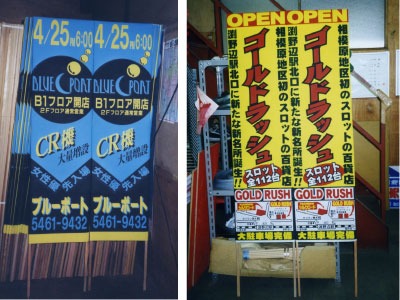 4/25㊊6:00
BLUE PORT
B1フロア開店
2Fフロア通常営業
CR機
大量増設
女性優先入場
ブルーポート
5461-9432
4/25㊊6:00
BLUE PORT
B1フロア開店
2Fフロア通常営業
CR機
大量増設
女性優先入場
ブルーポート
5461-9432
OPEN
相模原地区初のスロットの百貨店
ゴールドラッシュ
渕野辺駅北口に新たな新名所誕生!!
スロット
全112台
GOLD RUSH
大駐車場完備
OPEN
相模原地区初のスロットの百貨店
ゴールドラッシュ
渕野辺駅北口に新たな新名所誕生!!
スロット
全112台
GOLD RUSH
大駐車場完備